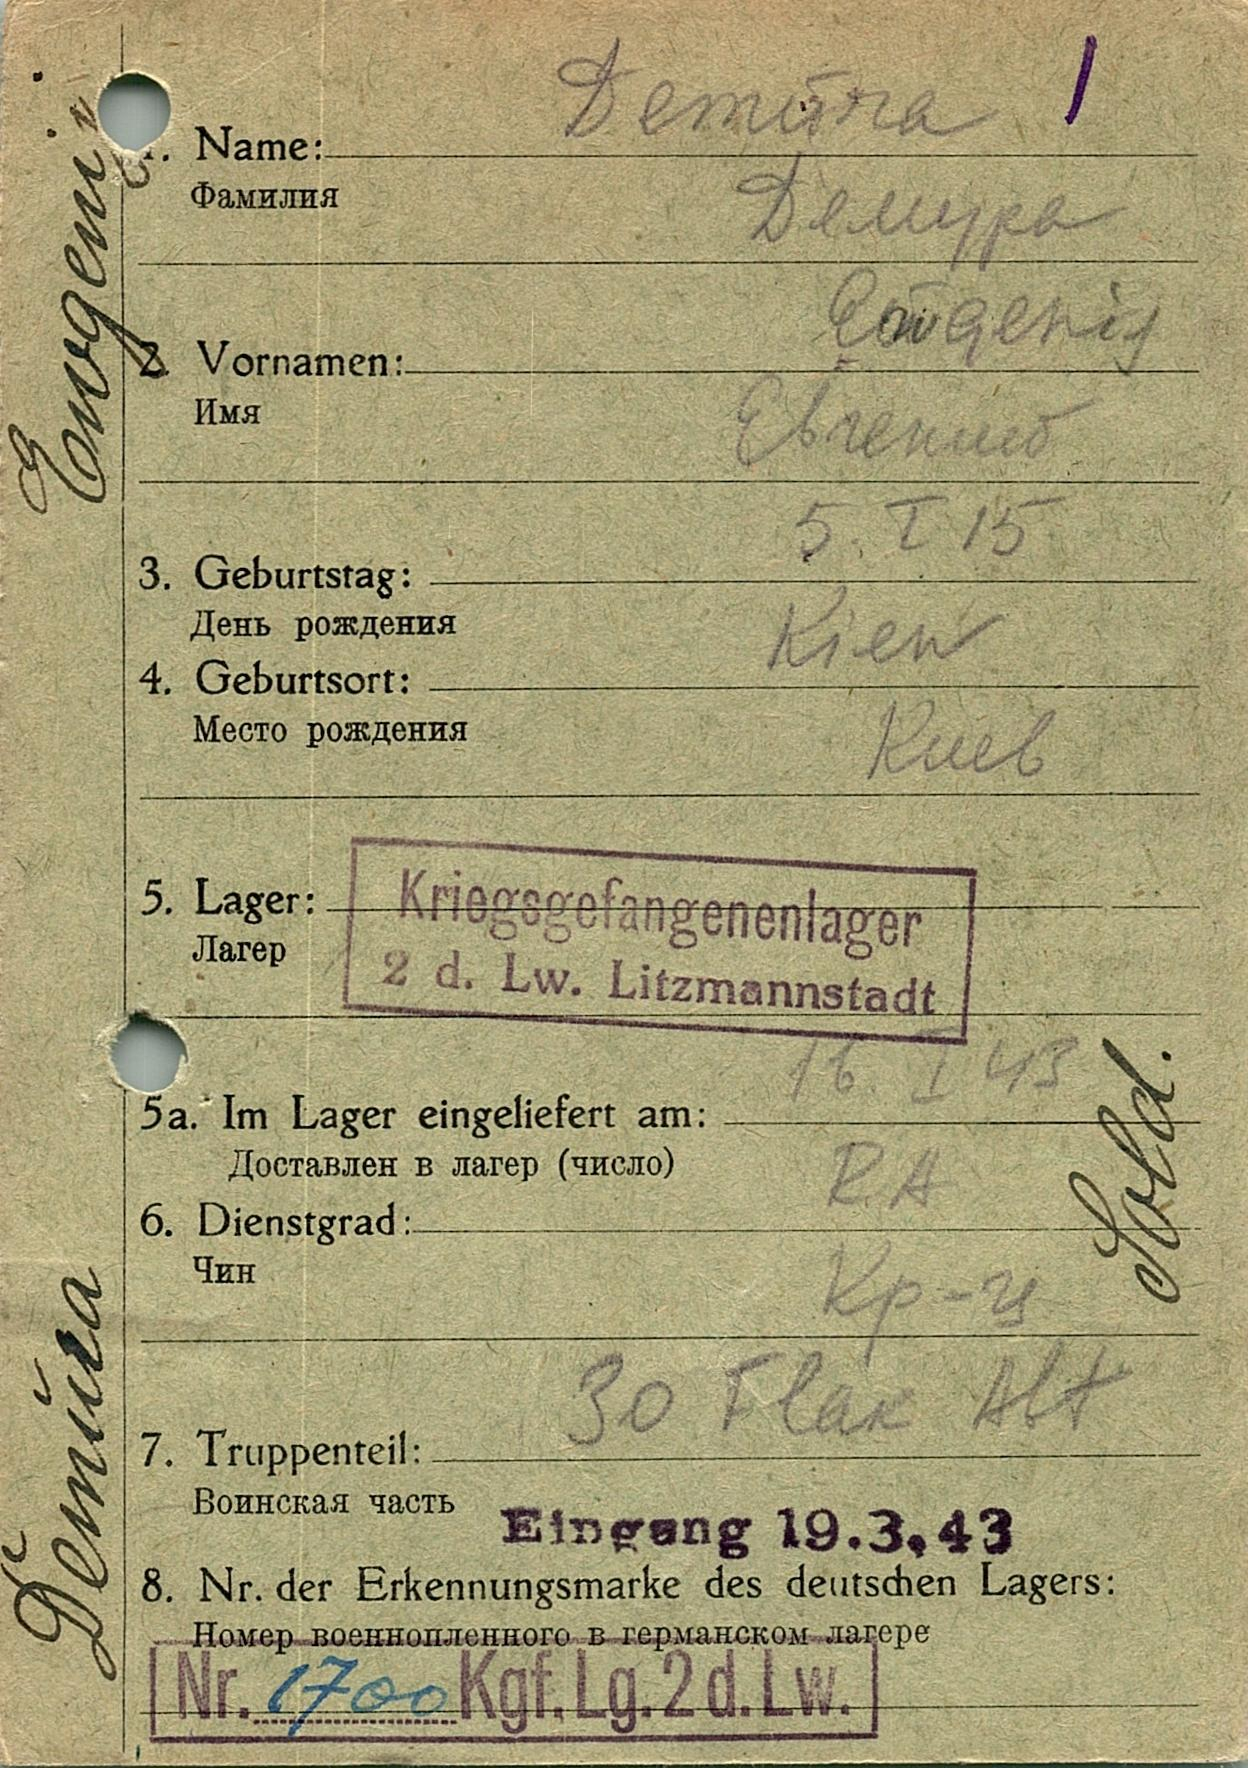 Demūra
1
1. Name:
Фамилия
Демура
Eowgenij
2. Vornamen:
Имя
Евгений
5. I 15
3. Geburtstag:
День рождения
Kiew
4. Geburtsort:
Место рождения
Киев
5. Lager:
Лагер
Kriegsgefangenenlager
2 d. Lw. Litzmannstadt
16. I 43
5a. Im Lager eingeliefert am:
Доставлен в лагер (число)
R.A
6. Dienstgrad:
Чин
Кр-ц
30 Flak Abt
7. Truppenteil:
Воинская часть
Eingang 19.3.43
8. Nr. der Erkennungsmarke des deutschen Lagers:
Номер военнопленного в германском лагере
Nr. 1700 Kgf.Lg.2 d.Lw.
Sold.